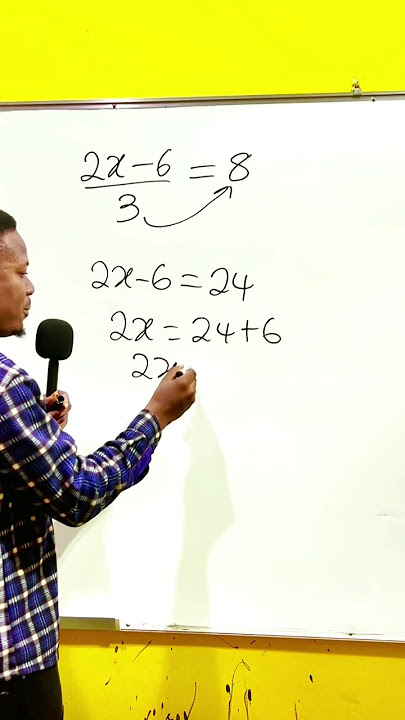 2x-6 = 8
3
2x-6 = 24
2x = 24+6
2x